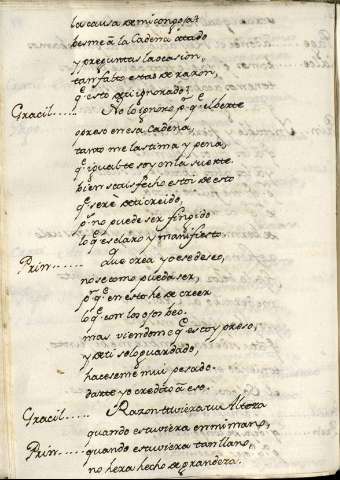 la causa de mi congoja?
besme â la Cadena âtado
y preguntas la ocasion,
tan falto estas de razon,
q̃ esto de ti ignorado?
Gracil..... No lo ignoro p.r q̃ el berte
opreso en esa Cadena,
tanto me lastima y pena,
q̃ igual te soy en la suerte.
bien satisfecho estoi de esto
q̃ serè de ti creido,
p.r no puede ser fingido
lo q̃ es claro y manifiesto.
Prin...... Que crea yo ese deseo,
no se como pueda ser,
p.r q̃ en esto he de creer
lo q̃ con los ojos beo.
mas viendome q̃ estoy preso,
y de ti solo guardado,
haceseme mui pesado
darte yo credito â eso.
Gracil..... Razon tuviera tu Alteza
quando estuviera en mi mano,
Prin...... quando estuviera tan llano,
no hera hecho de grandeza.